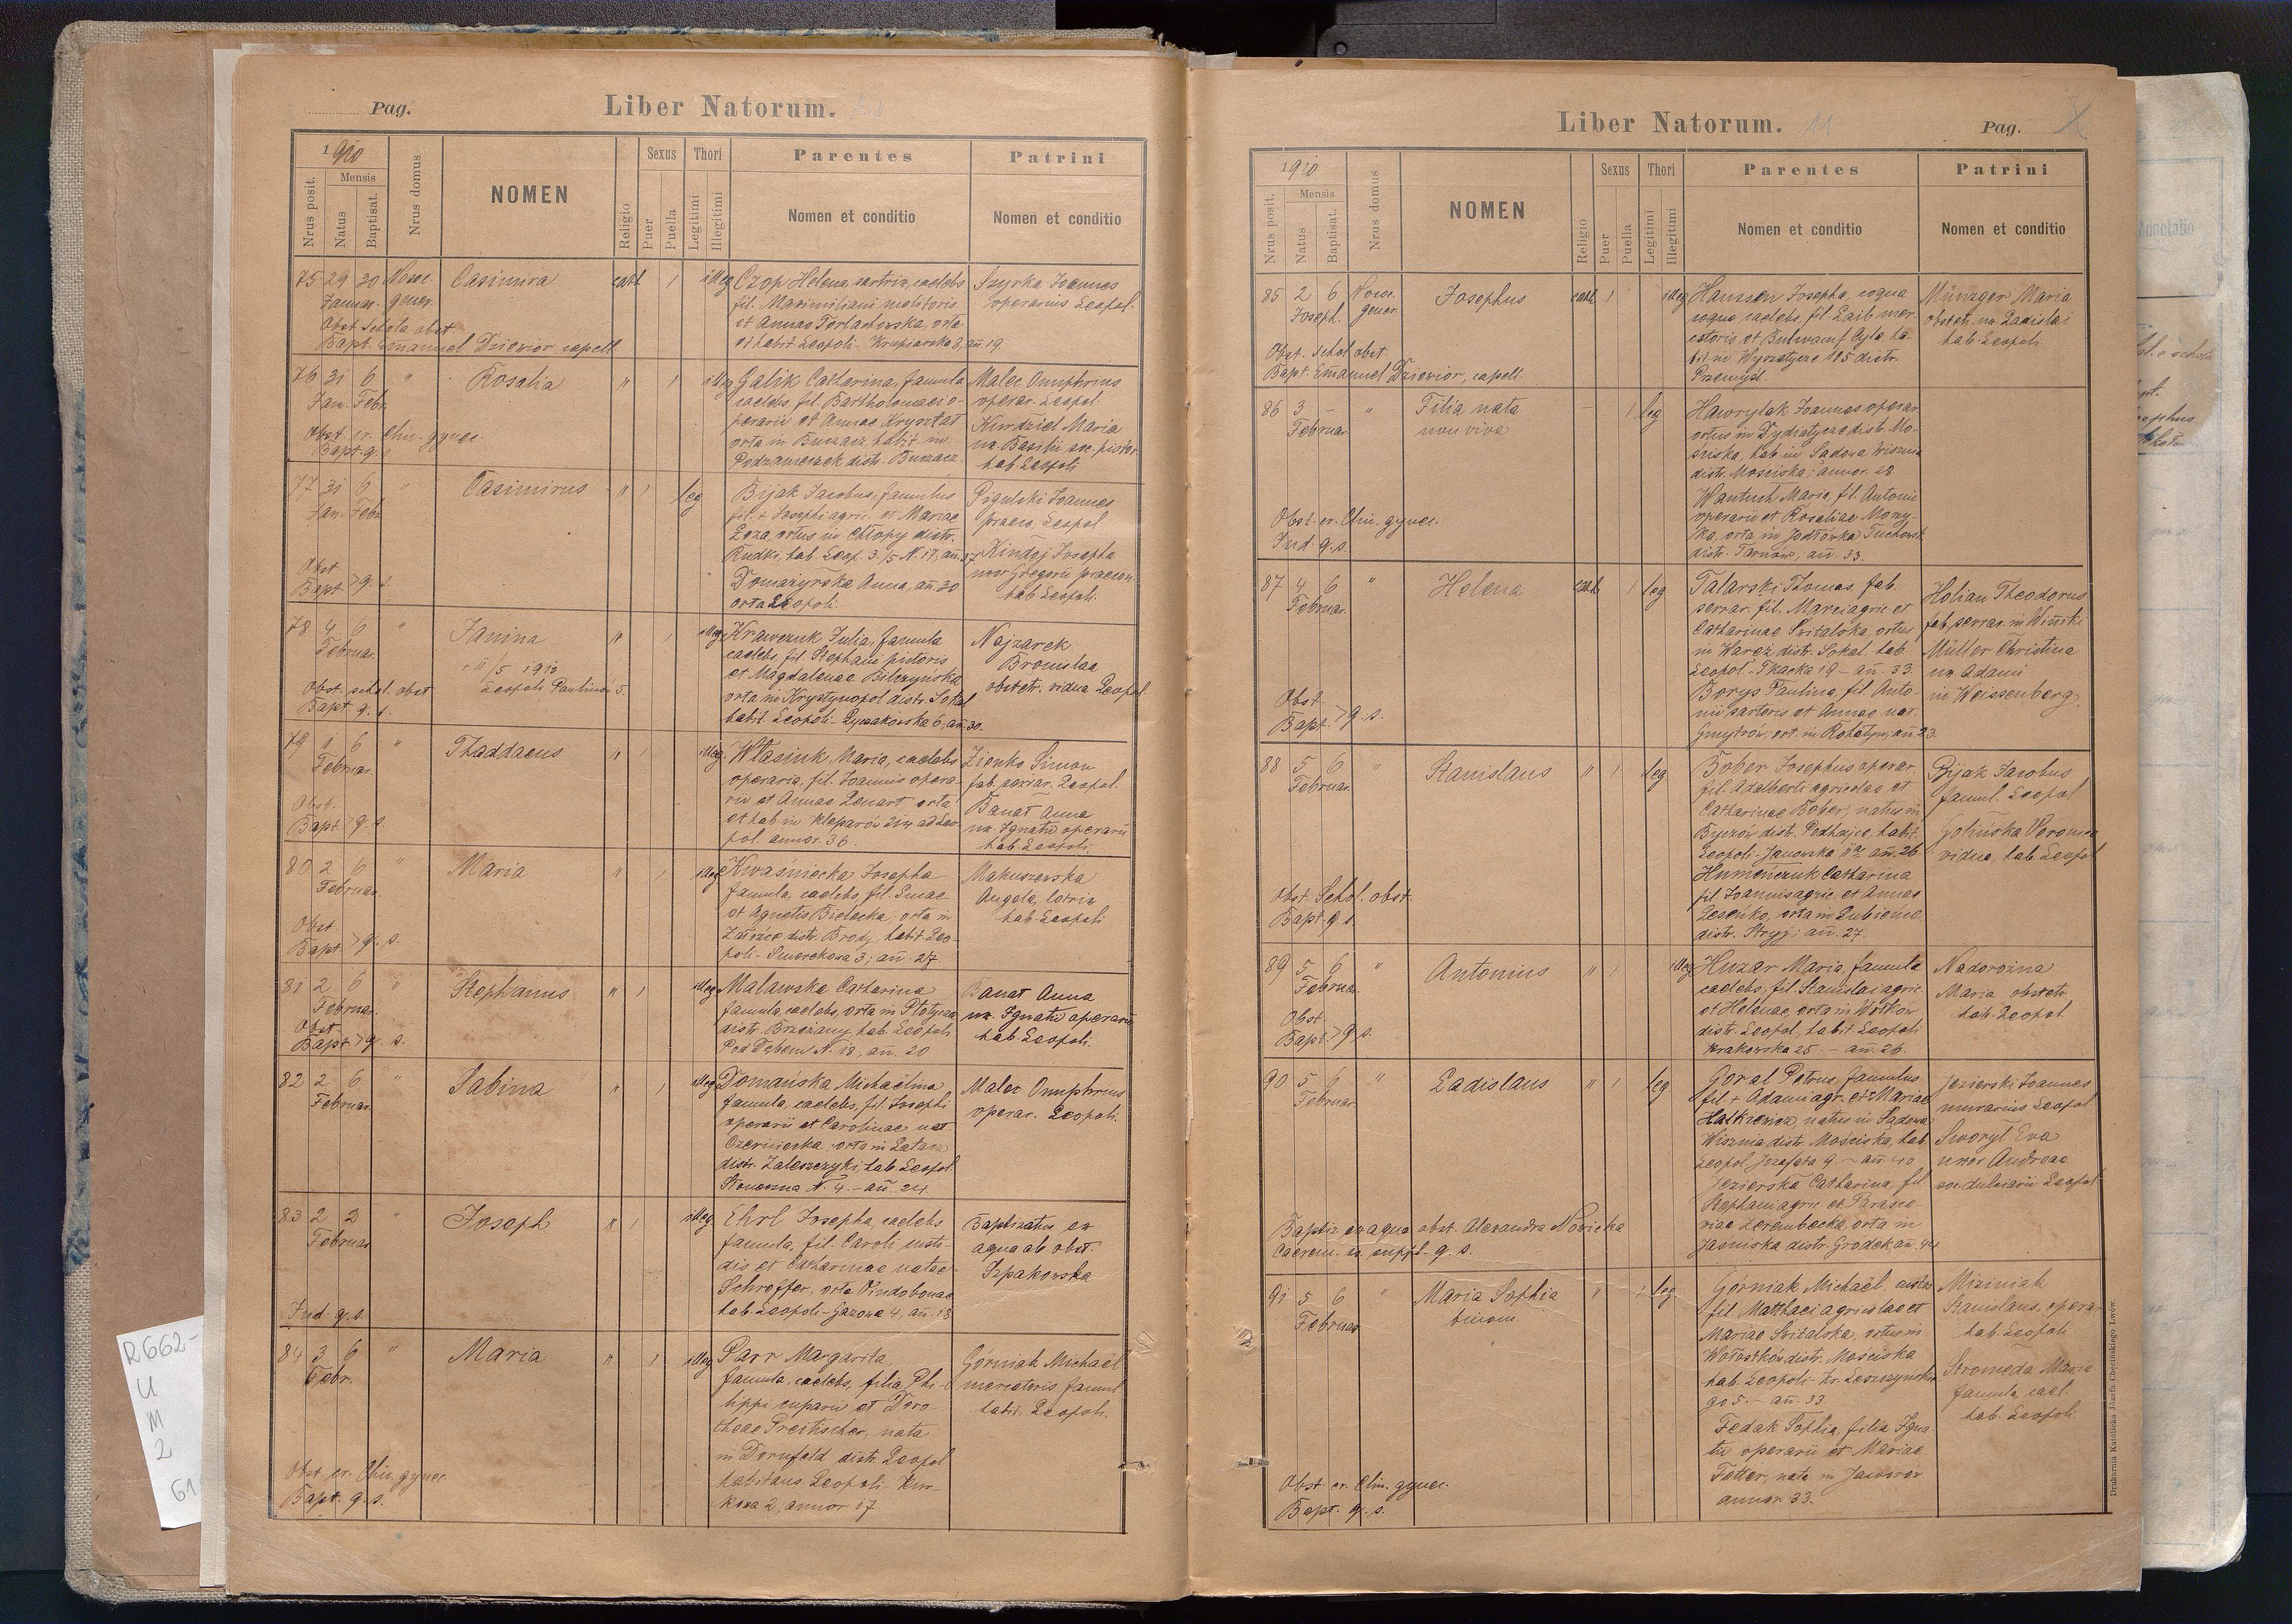 Pag.
Liber Natorum.
1910
Nrus posit.
Mensis
Natus
Baptisat.
Nrus domus
NOMEN
Religio
Sexus
Puer
Puella
Thori
Legitimi
Illegitimi
Parentes
Nomen et conditio
Patrini
Nomen et conditio
75 29 30 Nosoc. gener.
Januar.
Casimira
cath 1 illeg
Czop Helena, sartrix, caelebs
fil. Maximiliani molitoris
et Annae Terlachowska, orta
et habit. Leopoli - Krupiarska 8, an. 19.
Szyrka Joannes
operarius Leopol.
Obst. Schola obst.
Bapt. Emanuel Dziewior capell.
76 31 6 "
Jan. Febr.
Rosalia
" 1 illeg
Galik Catharina, famula
caelebs, fil. Bartholomaei o-
perarii et Annae Krysztat
orta in Buczacz habit. in
Podzameczek distr. Buczacz.
Malec Onuphrius
operar. Leopol.
Kurdziel Maria
ux. Basilii soc. pistor.
hab. Leopoli
Obst. ex. Clin. gynec.
Bapt. q. s.
77 31 6 "
Jan. Febr.
Casimirus
" 1 leg
Bijak Jacobus, famulus
fil. + Josephi agric. et Mariae
Loza, ortus in Chłopy distr.
Rudki, hab. Leop. 3/5 N. 17, an. 37
Domazyrska Anna, an. 30
orta Leopoli.
Pigulski Joannes
praeco, Leopol
Kindej Josepha
uxor Gregorii praecon.
hab. Leopoli.
Obst.
Bapt. > q. s.
78 4 6 "
Februar.
Janina
+ 11/5 1910
Leopoli Paulinów 5.
" 1 illeg.
Krawczuk Julia, famula
caelebs, fil. Stephani pistoris
et Magdalenae Bilczynska
orta in Krystynopol distr. Sokal
habit. Leopoli - Łyczakowska 6, an. 30.
Najzarek
Bronislaa
obstetr. vidua Leopol.
Obst. schol. obst
Bapt. q. s.
79 1 6 "
Februar.
Thaddaeus
" 1 illeg.
Własiuk Maria, caelebs
operaria, fil. Joannis opera
rii et Annae Lenart orta
et hab in Kleparów 214 ad Leo
pol. annor. 36.
Zienko Simon
fab. Leopol.
Banat Anna
ux. Ignatii operarii
hab. Leopoli.
Obst.
Bapt. > q. s.
80 2 6 "
Februar.
Maria
" 1 illeg
Kwaśniecka Josepha
famula, caelebs, fil. Lucae
et Agnetis Bielecka, orta in
distr. Brody, habit. Leo-
poli - Smerekowa 3; an. 27.
Makuszewska
Angela, lotrix
hab. Leopoli
Obst.
Bapt. > q. s.
81 2 6 "
Februar.
Stephanus
" 1 illeg
Malawska Catharina
famula, caelebs, orta in Płotycza
distr. Brzeżany, hab. Leopoli
Pod Dębem N. 18, an. 20
Banat Anna
ux. Ignatii operarii
hab. Leopoli.
Obst.
Bapt. > q. s.
82 2 6 "
Februar.
Sabina
" 1 illeg
Domańska Michaëlina
famula, caelebs, fil. Josephi
operarii et Carolinae nat.
Czerniecka, orta in Latacz
distr. Zaleszczyki, hab. Leopol.
Słoneczna N. 4 - an. 24.
Malec Onuphrius
operar. Leopoli.
83 2 2 "
Februar
Joseph
" 1 illeg
Ehrl Josepha, caelebs
famula, fil. Caroli custo-
dis et Catharinae natae
Schroffer, orta Vindobonae
hab. Leopoli - Gazowa 4, an. 18
Baptizatus ex
aqua ab obst.
Szpakowska
Ind. q. s.
84 3 6 "
Febr.
Maria
" 1 illeg
Parr Margarita
famula, caelebs, filia Phi-
lippi cuparii et Doro-
theae Preitscher, nata
in Dornfeld distr. Leopol
habitans Leopoli Kur-
kowa 2, annor 17.
Górniak Michaël
mercatoris famul.
habit. Leopoli.
Obst. ex. Clin. gynec.
Bapt. q. s.
Liber Natorum. 11
Pag.
1910
Nrus posit.
Mensis
Natus
Baptisat.
Nrus domus
NOMEN
Religio
Sexus
Puer
Puella
Thori
Legitimi
Illegitimi
Parentes
Nomen et conditio
Patrini
Nomen et conditio
85 2 6 Nosoc.
gener.
Josephus
cath 1 illeg
Hamsen Josepha, coqua
caelebs, fil. Laib mer-
catoris et Cyla, ha-
bit. in Wyszatyce 105 distr.
Przemyśl.
Münzger Maria
obstetr. ux. Ladislai
hab. Leopoli
Obst. Schol. obst.
Bapt. Emanuel Dziewior, capell.
86 3 - "
Februar.
Filia nata
non viva
- 1 leg
Hawrylak Joannes operar.
ortus in Dydiatycze distr. Mo-
sciska, hab in Sadowa Wisznia
distr. Mosciska; annor. 22
Wantuch Maria, fil. Antonii
operarii et Rosaliae Mozy-
ka, orta in Jodłówka Tuchowsk
distr. Tarnow, an. 33.
Obst. ex. Clin. gynec.
Ind. q. s.
87 4 6 "
Februar.
Helena
cath 1 leg
Talarski Thomas, fab.
serrar. fil. Marci agric. et
Catharinae Switalska, ortus
in Waręż distr. Sokal, hab.
Leopol. - Tkacka 19 - an. 33.
Borys Paulina, fil. Anto-
nii sartoris et Annae nat.
Gmytrów, ort. in Rohatyn, an. 23.
Holian Theodorus
fab. serrar. in Winniki
Müller Christina
ux. Adami
in Weissenberg.
Obst.
Bapt. > q. s.
88 5 6 "
Februar.
Stanislaus
" 1 leg
Bober Josephus operar.
fil. Adalberti agricolae et
Catharinae Bober, natus in
distr. Podhajce, habit.
Leopoli - Janowska 11a an. 26.
Humeńczuk Catharina
fil. Joannis agric. et Annae
Lesenko, orta in Lubience
distr. Stryj; an. 27.
Bijak Jacobus
famul. Leopol
Golińska Veronica
vidua, hab. Leopol
Obst. Schol. obst.
Bapt. q. s.
89 5 6 "
Februar.
Antonius
" 1 illeg
Huzar Maria, famula
caelebs, fil. Stanislai agric.
et Helenae, orta in Wołków
distr. Leopol, habit. Leopoli
Krakowska 25. - an. 26.
Nadorożna
Maria, obstetr.
hab. Leopol
Obst.
Bapt. > q. s.
90 5 6 "
Februar.
Ladislaus
" 1 leg
Goral Petrus, famulus
fil. + Adami agr. et Mariae
Hałkiewicz, natus in Sądowa
Wisznia distr. Mościska, hab.
Leopol Jozafata 9. - an. 40
Jezierska Catharina, fil.
Stephani agric. et Parasce-
viae Zerembecka, orta in
Jaśniska distr. Gródek, an. 44
Jezierski Joannes
murarius Leopol.
Sworyl Eva
uxor Andreae
soc. dulciarii Leopol.
Baptiz. ex aqua obst. Alexandra Nowicka
Caerem. ss. suppl. q. s.
91 5 6 "
Februar
Maria Sophia
binom.
" 1 leg
Górniak Michaël, custos
fil. Matthaei agricolae et
Mariae Switalska, ortus in
Wołostków distr. Mościska
hab. Leopoli - Kr. Leszczyńskie
go 5. - an. 33.
Fedak Sophia, filia Igna-
tii operarii et Mariae
Fetter, nata in Jaworów
annor. 33.
Miziniak
Stanislaus, operar.
hab. Leopoli
Stromeda Maria
famula, cael.
hab. Leopoli.
Obst. ex. Clin. gynec.
Bapt. q. s.
Drukarnia Katolicka Józefa Chęcińskiego Lwów.
R662-
U
M
2
61